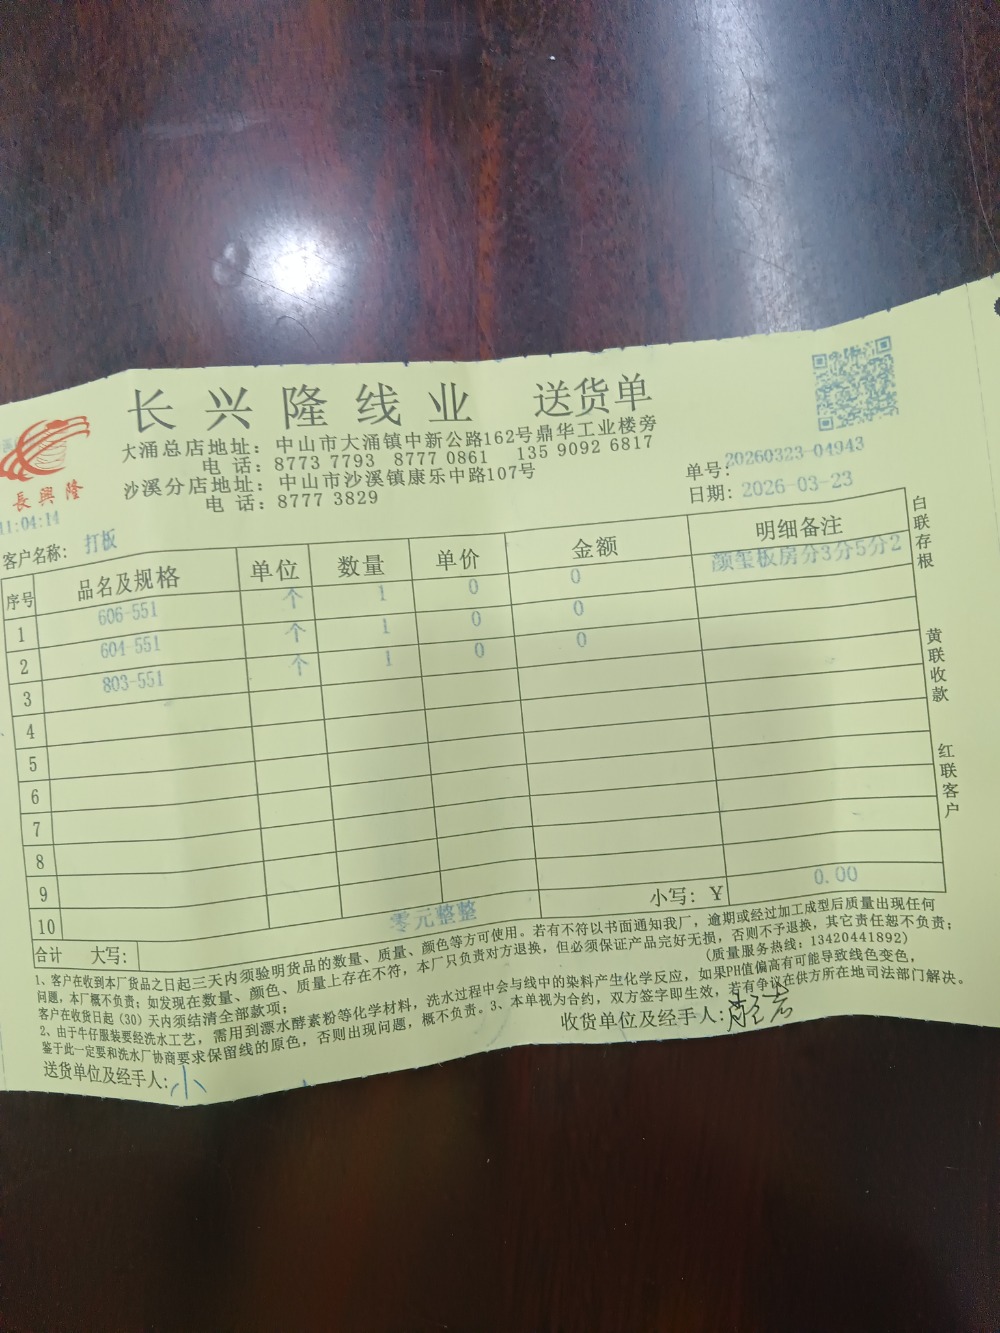 长兴隆线业 送货单
大涌总店地址：中山市大涌镇中新公路162号鼎华工业楼旁
电 话：8773 7793 8777 0861 135 9092 6817
沙溪分店地址：中山市沙溪镇康乐中路107号
电 话：8777 3829
長興隆
11:04:14
单号：20260323-04943
日期：2026-03-23
客户名称：打板
序号 品名及规格 单位 数量 单价 金额 明细备注
1 606-551 个 1 0 0 颜玺板房分3分5分2
2 604-551 个 1 0 0
3 803-551 个 1 0 0
4
5
6
7
8
9
10
合计 大写：零元整整 小写：￥ 0.00
白联存根
黄联收款
红联客户
1、客户在收到本厂货品之日起三天内须验明货品的数量、质量、颜色等方可使用。若有不符以书面通知我厂，逾期或经过加工成型后质量出现任何
问题，本厂概不负责；如发现在数量、颜色、质量上存在不符，本厂只负责对方退换，但必须保证产品完好无损，否则不予退换，其它责任恕不负责；
客户在收货日起（30）天内须结清全部款项；
（质量服务热线：13420441892）
2、由于牛仔服装要经洗水工艺，需用到漂水酵素粉等化学材料，洗水过程中会与线中的染料产生化学反应，如果PH值偏高有可能导致线色变色，
鉴于此一定要和洗水厂协商要求保留线的原色，否则出现问题，概不负责。3、本单视为合约，双方签字即生效，若有争议在供方所在地司法部门解决。
送货单位及经手人：小
收货单位及经手人：